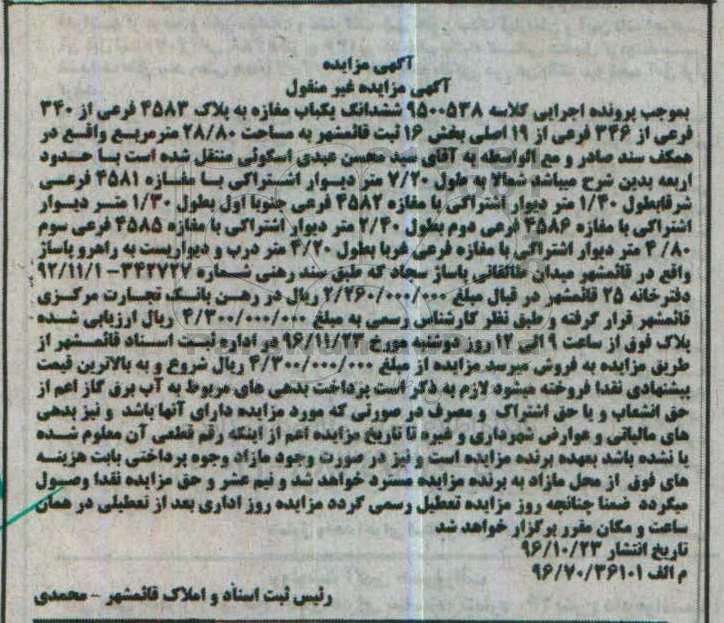 آگهی مزایده
آگهی مزایده غیر منقول
بموجب پرونده اجرایی کلاسه ۹۵۰۰۵۳۸ ششدانگ یکباب مغازه به پلاک ۴۵۸۳ فرعی از ۳۴۰
فرعی از ۳۴۶ فرعی از ۱۹ اصلی بخش ۱۶ ثبت قائمشهر به مساحت ۲۸/۸۰ مترمربع واقع در
همکف سند صادر و مع الواسطه به آقای سید محسن عبدی اسکوئی منتقل شده است با حدود
اربعه بدین شرح میباشد شمالا به طول ۷/۲۰ متر دیوار اشتراکی با مغازه ۴۵۸۱ فرعی
شرقابطول ۱/۴۰ متر دیوار اشتراکی با مغازه ۴۵۸۲ فرعی جنوبا اول بطول ۱/۳۰ متر دیوار
اشتراکی با مغازه ۴۵۸۶ فرعی دوم بطول ۲/۴۰ متر دیوار اشتراکی با مغازه ۴۵۸۵ فرعی سوم
۴/۸۰ متر دیوار اشتراکی با مغازه فرعی غربا بطول ۴/۲۰ متر درب و دیواریست به راهرو پاساژ
واقع در قائمشهر میدان طالقانی پاساژ سجاد که طبق سند رهنی شماره ۳۴۲۷۲۷-۹۲/۱۱/۱
دفترخانه ۲۵ قائمشهر در قبال مبلغ ۲/۲۶۰/۰۰۰/۰۰۰ ریال در رهن بانک تجارت مرکزی
قائمشهر قرار گرفته و طبق نظر کارشناس رسمی به مبلغ ۴/۳۰۰/۰۰۰/۰۰۰ ریال ارزیابی شده
پلاک فوق از ساعت ۹ الی ۱۲ روز دوشنبه مورخ ۹۶/۱۱/۲۳ در اداره ثبت اسناد قائمشهر از
طریق مزایده به فروش میرسد مزایده از مبلغ ۴/۳۰۰/۰۰۰/۰۰۰ ریال شروع و به بالاترین قیمت
پیشنهادی نقدا فروخته میشود لازم به ذکر است پرداخت بدهی های مربوط به آب برق گاز اعم از
حق انشعاب و یا حق اشتراک و مصرف در صورتی که مورد مزایده دارای آنها باشد و نیز بدهی
های مالیاتی و عوارض شهرداری و غیره تا تاریخ مزایده اعم از اینکه رقم قطعی آن معلوم شده
یا نشده باشد بعهده برنده مزایده است و نیز در صورت وجود مازاد وجوه پرداختی بابت هزینه
های فوق از محل مازاد به برنده مزایده مسترد خواهد شد و نیم عشر و حق مزایده نقدا وصول
میگردد ضمنا چنانچه روز مزایده تعطیل رسمی گردد مزایده روز اداری بعد از تعطیلی در همان
ساعت و مکان مقرر برگزار خواهد شد
تاریخ انتشار ۹۶/۱۰/۲۳
م الف ۹۶/۷۰/۳۶۱۰۱
رئیس ثبت اسناد و املاک قائمشهر - محمدی